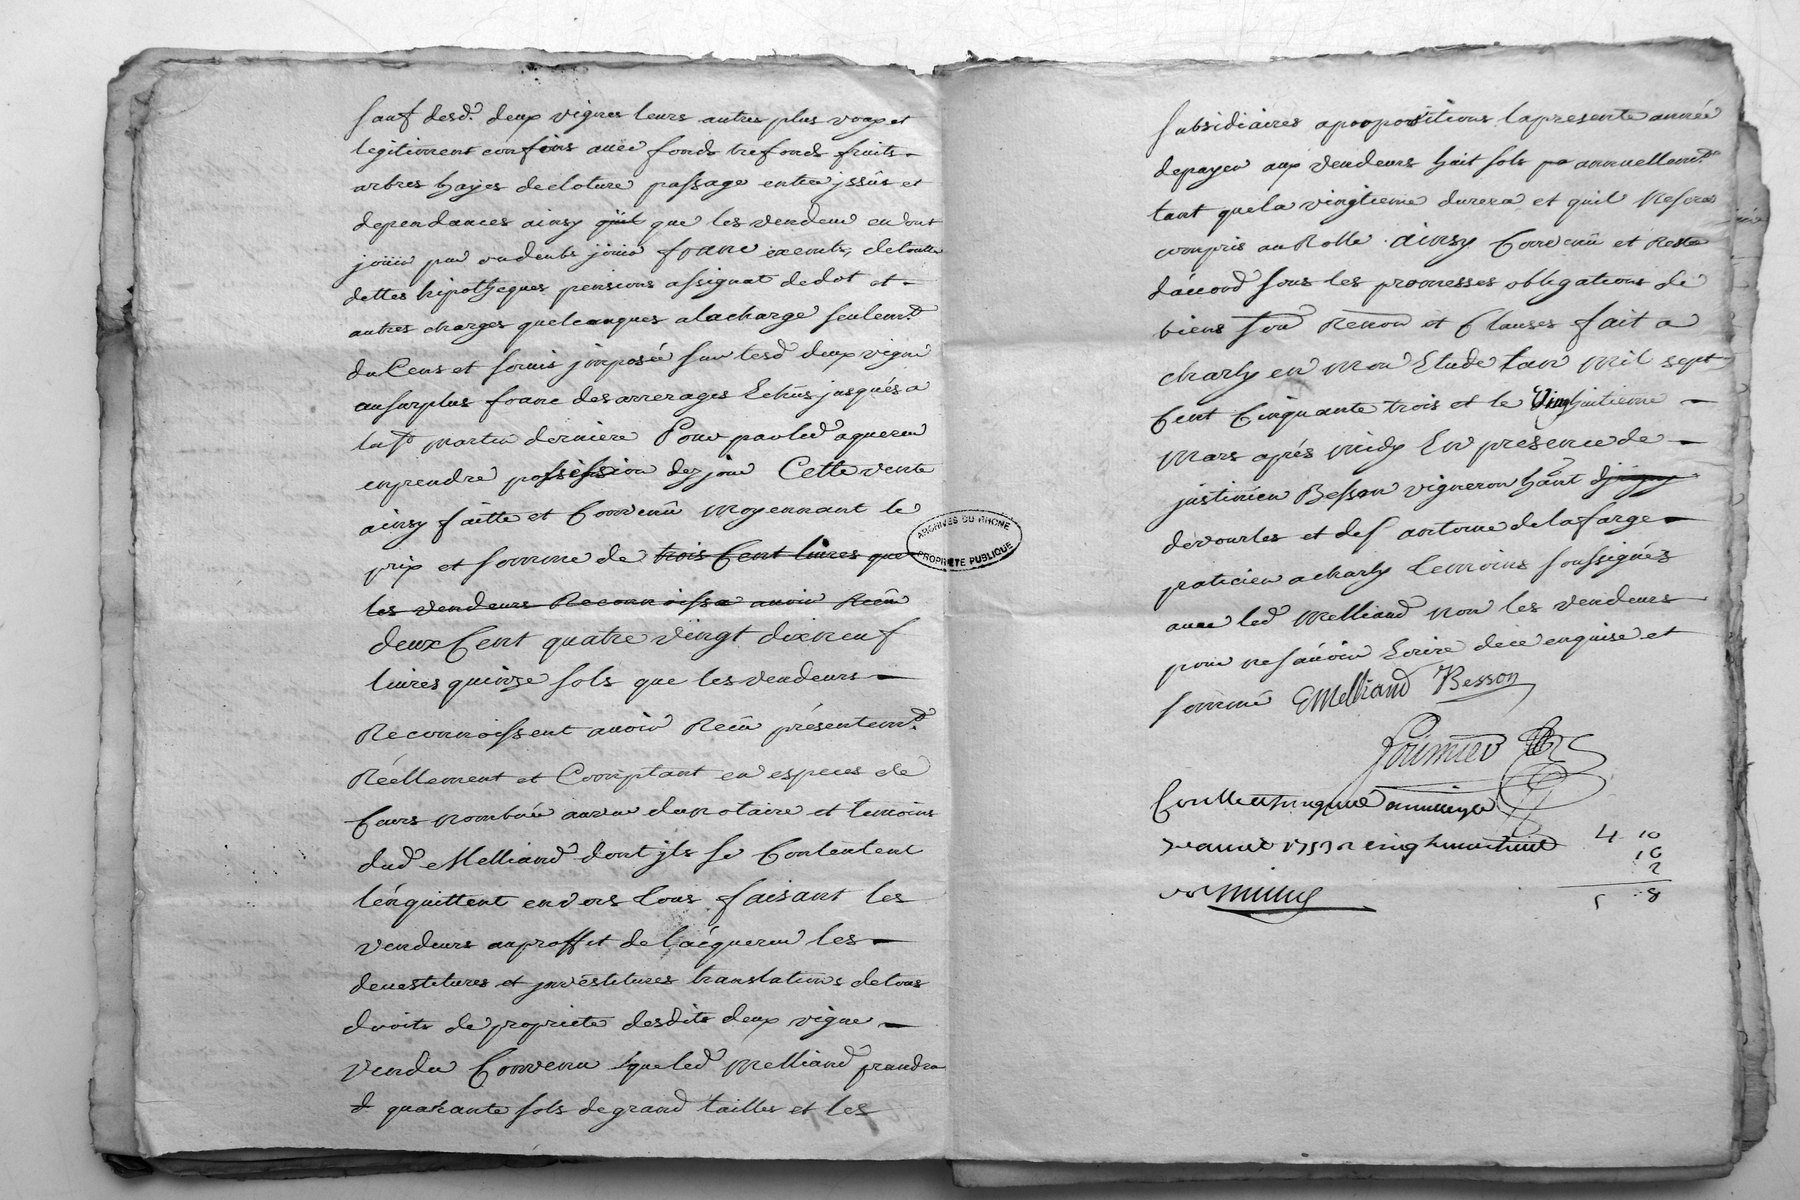 sauf desd. deux vignes leurs autres plus vrays et
legitimes confins avec fonds trefonds fruits
arbres hayes de cloture passage entrées jssûs et
dependances ainsy quil que les vendeurs en ont
joüir pu ou deubs joüir franc exempts, de toutte
dettes hipotheques pensions assignat de dot et
autres charges quelcanques a la charge seulemt.
du Cens et servis jmposée sur lesd deux vigne
au surplus franc des arrerages Echûs jusques a
la st martin derniere Pour par led aquereur
en prendre possession dez jour Cette vente
ainsy faitte et Convenû moyennant le
prix et somme de trois Cent livres que
les vendeurs Reconnoisse avoir Reçû
deux Cent quatre vingt dix neuf
livres quinze sols que les vendeurs
Reconnoissent avoir Reçû présentemt.
Réellement et Comptant en especes de
Cours nombrée au vu du notaire et temoins
dud Melliand dont jls se Contentent
l'en quittent envers tous faisant les
vendeurs au proffit de l'acquereur les
devestitures et jnvestitures translations de tous
droits de proprieté desdits deux vigne
vendu Convenu que led Melliand prendra
quarante sols de grand tailles et les
ARCHIVES DU RHONE
PROPRIETE PUBLIQUE
subsidiaires a proportions la presente année
de payer aux vendeurs huit sols annuellemt.
tant que la vingtieme durera et quil Resera
compris au Rolle ainsy Convenû et Resté
d'accord sous les promesses obligations de
biens soum Renon et Clauses fait a
charly en mon Etude l'an mil sept
Cent Cinquante trois et le Vingthuitieme
mars aprés midy En presence de
justinien Besson vigneron hant
de vourles et de s antoine delafarge
praticien a charly temoins soussignéz
avec led Melliand non les vendeurs
pour ne sávoir Ecrire de ce enquise et
sommé Melliand Besson
Fournier
4 10
16
2
5 8